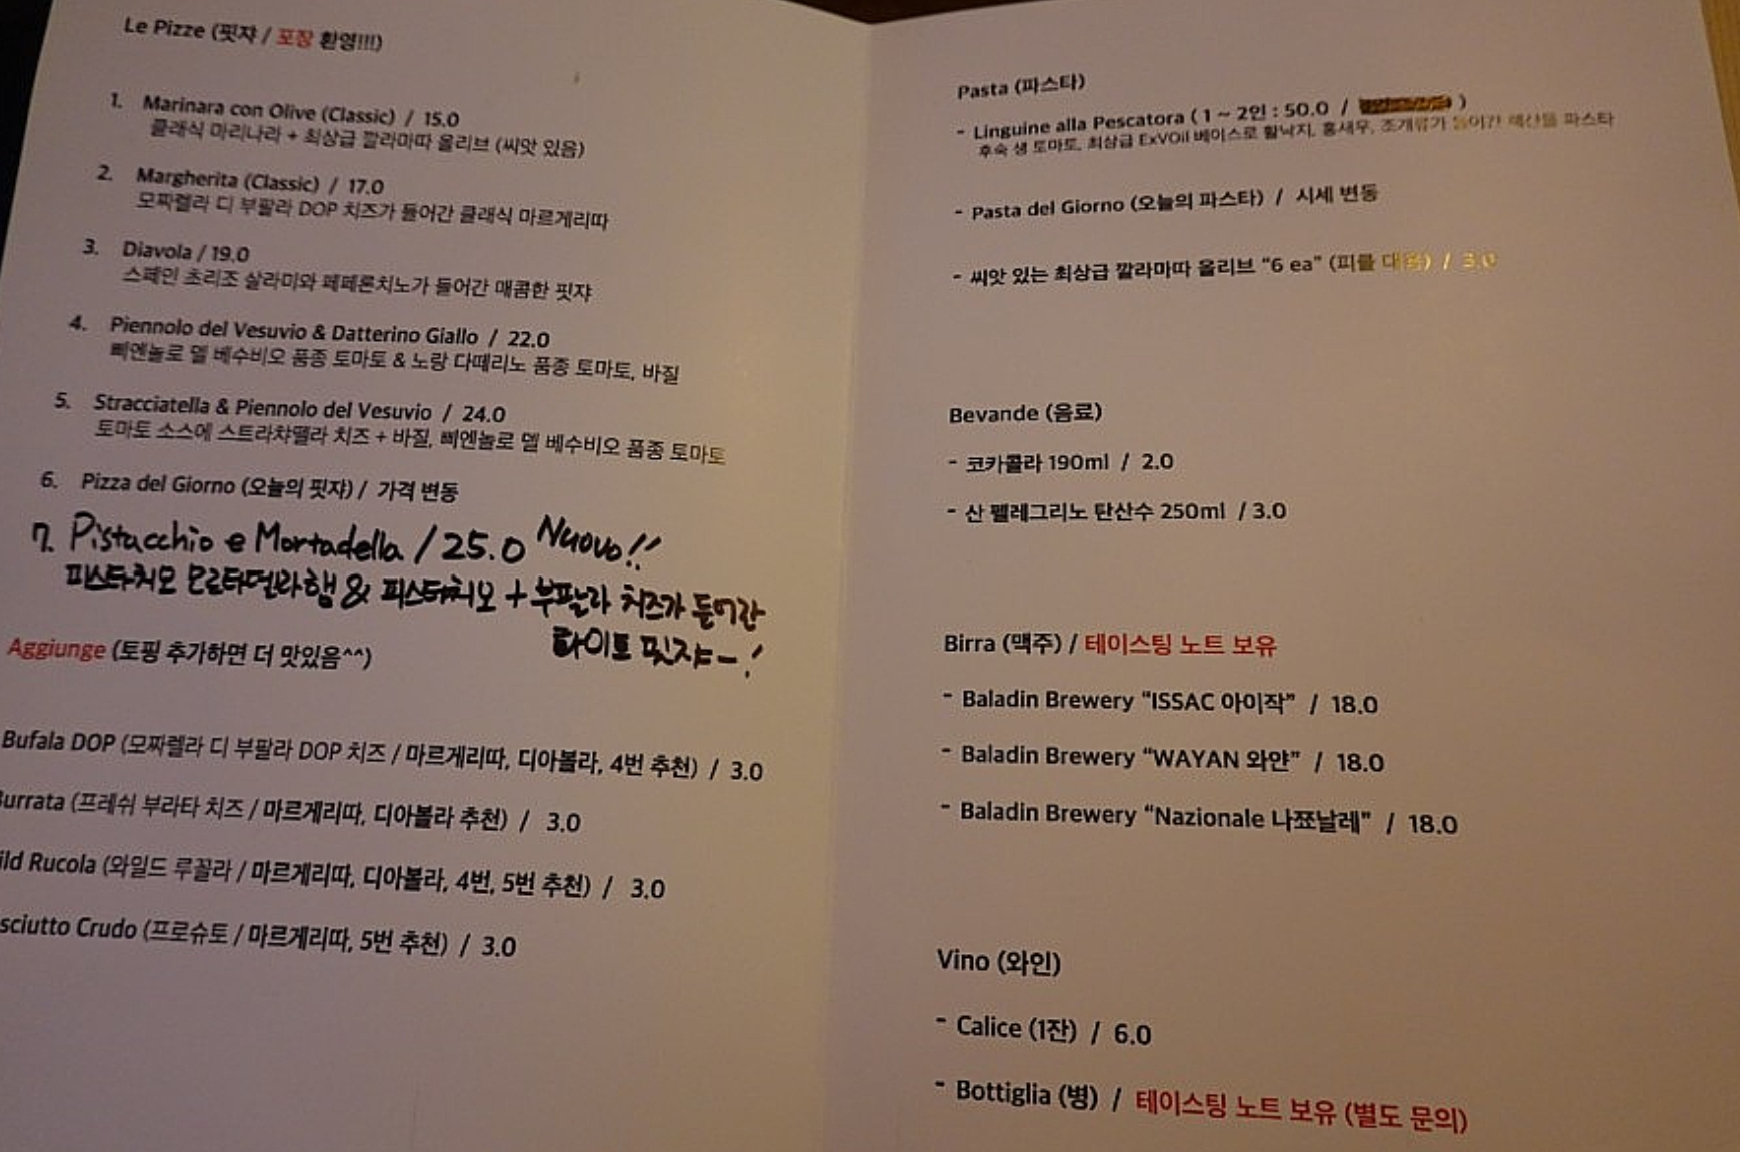 Le Pizze (핏쟈 / 포장 환영!!!)
1. Marinara con Olive (Classic) / 15.0
클래식 마리나라 + 최상급 깔라마따 올리브 (씨앗 있음)
2. Margherita (Classic) / 17.0
모짜렐라 디 부팔라 DOP 치즈가 들어간 클래식 마르게리따
3. Diavola / 19.0
스페인 초리조 살라미와 페페론치노가 들어간 매콤한 핏쟈
4. Piennolo del Vesuvio & Datterino Giallo / 22.0
삐엔놀로 델 베수비오 품종 토마토 & 노랑 다떼리노 품종 토마토, 바질
5. Stracciatella & Piennolo del Vesuvio / 24.0
토마토 소스에 스트라챠뗄라 치즈 + 바질, 삐엔놀로 델 베수비오 품종 토마토
6. Pizza del Giorno (오늘의 핏쟈) / 가격 변동
7. Pistacchio e Mortadella / 25.0 Nuovo!!
피스타치오 모르타델라햄 & 피스타치오 + 부팔라 치즈가 들어간
화이트 핏쟈-!
Aggiunge (토핑 추가하면 더 맛있음^^)
Bufala DOP (모짜렐라 디 부팔라 DOP 치즈 / 마르게리따, 디아볼라, 4번 추천) / 3.0
urrata (프레쉬 부라타 치즈 / 마르게리따, 디아볼라 추천) / 3.0
ild Rucola (와일드 루꼴라 / 마르게리따, 디아볼라, 4번, 5번 추천) / 3.0
sciutto Crudo (프로슈토 / 마르게리따, 5번 추천) / 3.0
Pasta (파스타)
- Linguine alla Pescatora ( 1 ~ 2인 : 50.0 / )
후숙 생 토마토, 최상급 ExVOil 베이스로 활낙지, 홍새우, 조개류가 들어간 해산물 파스타
- Pasta del Giorno (오늘의 파스타) / 시세 변동
- 씨앗 있는 최상급 깔라마따 올리브 “6 ea” (피클 대용) / 3.0
Bevande (음료)
- 코카콜라 190ml / 2.0
- 산 펠레그리노 탄산수 250ml / 3.0
Birra (맥주) / 테이스팅 노트 보유
- Baladin Brewery “ISSAC 아이작” / 18.0
- Baladin Brewery “WAYAN 와얀” / 18.0
- Baladin Brewery “Nazionale 나쬬날레” / 18.0
Vino (와인)
- Calice (1잔) / 6.0
- Bottiglia (병) / 테이스팅 노트 보유 (별도 문의)